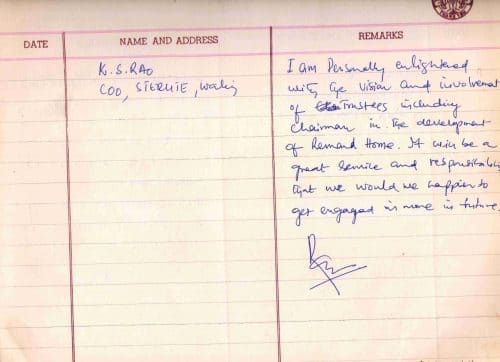 DATE
NAME AND ADDRESS
REMARKS
K.S. RAO
COO, STERLITE,
I am Personally enlightened
with the vision and involvement
of Trustees including
Chairman in the development
of Remand Home. It will be a
great Service and responsibility
that we would we happier to
get engaged in more in future.